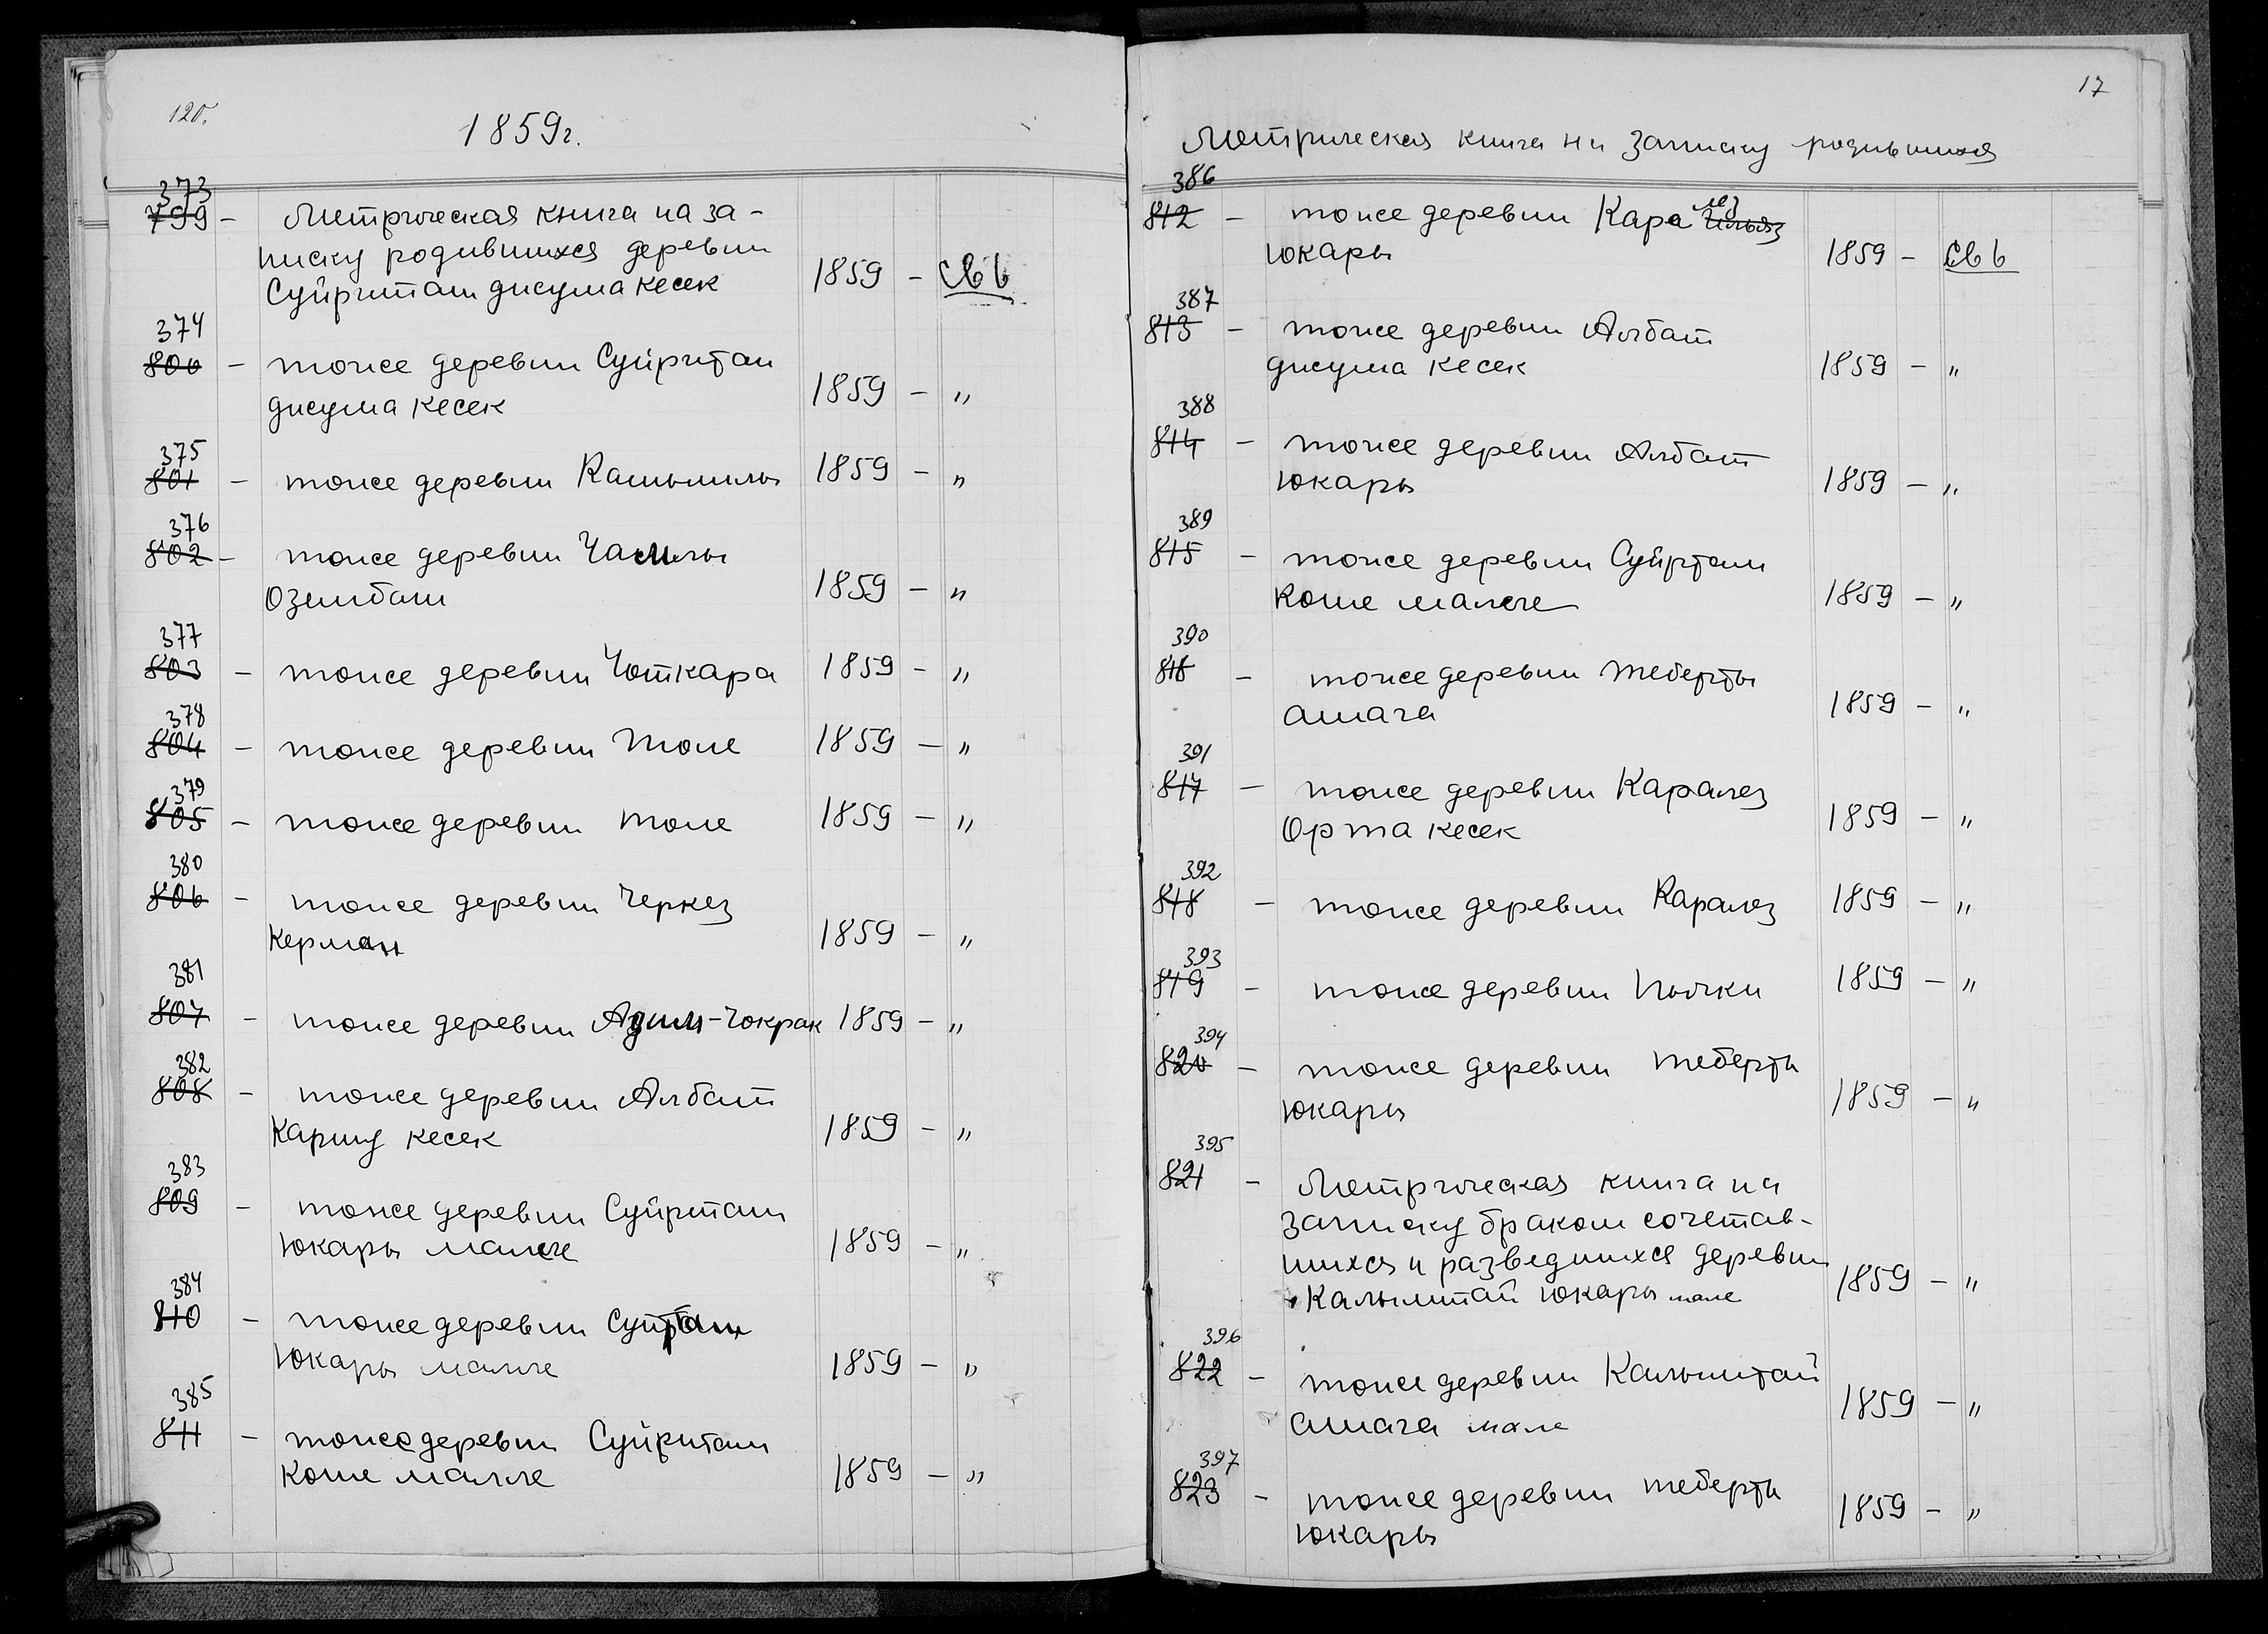 120.
1859г.
373
799 - Метрическая книга на за-
писку родившихся деревни
Суйриташ джума кесек 1859 - Св 6
374
800 - тоже деревни Суйриташ
джума кесек 1859 - "
375
801 - тоже деревни 1859 - "
376
802 - тоже деревни
Озенбаш 1859 - "
377
803 - тоже деревни Чоткара 1859 - "
378
804 - тоже деревни Толе 1859 - "
379
805 - тоже деревни Толе 1859 - "
380
806 - тоже деревни Черкез
Керман 1859 - "
381
807 - тоже деревни Адым-Чокрак 1859 - "
382
808 - тоже деревни Албат
Каршу кесек 1859 - "
383
809 - тоже деревни Суйрташ
Юкары малече 1859 - "
384
810 - тоже деревни Суйрташ
Юкары малле 1859 - "
385
811 - тоже деревни Суйриташ
Коше малле 1859 - "
17
Метрическая книга на записку родившихся
386
812 - тоже деревни Кара лез
Юкары 1859 - Св 6
387
813 - тоже деревни Албат
джума кесек 1859 - "
388
814 - тоже деревни Албат
Юкары 1859 - "
389
815 - тоже деревни Суйрташ
Коше малече 1859 - "
390
816 - тоже деревни Теберты
ашага 1859 - "
391
817 - тоже деревни Каралез
Орта кесек 1859 - "
392
818 - тоже деревни Каралез 1859 - "
393
819 - тоже деревни Пычки 1859 - "
394
820 - тоже деревни Теберты
Юкары 1859 - "
395
821 - Метрическая книга на
записку браком сочетав-
шихся и разведшихся деревни
Калымтай Юкары мале 1859 - "
396
822 - тоже деревни Калымтай
ашага мале 1859 - "
397
823 - тоже деревни Теберты
Юкары 1859 - "